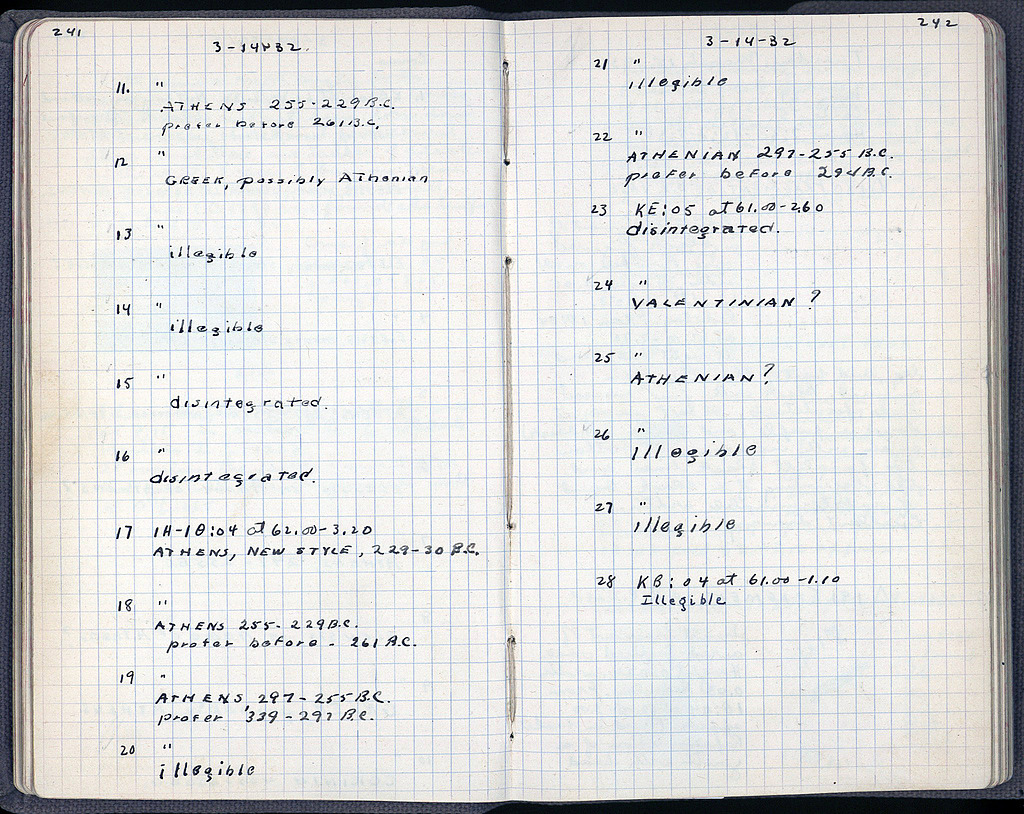 241
3-14-32.
11. "
ATHENS 255-229 B.C.
prefer before 261 B.C.
12 "
GREEK, possibly Athenian
13 "
illegible
14 "
illegible
15 "
disintegrated.
16 "
disintegrated.
17 IH-IΘ:04 at 62.00-3.20
ATHENS, NEW STYLE, 229-30 B.C.
18 "
ATHENS 255-229 B.C.
prefer before - 261 B.C.
19 "
ATHENS, 297-255 B.C.
prefer 339-297 B.C.
20 "
illegible
242
3-14-32
21 "
illegible
22 "
ATHENIAN 297-255 B.C.
prefer before 294 B.C.
23 KE:05 at 61.00-2.60
disintegrated.
24 "
VALENTINIAN ?
25 "
ATHENIAN ?
26 "
illegible
27 "
illegible
28 KB:04 at 61.00-1.10
Illegible